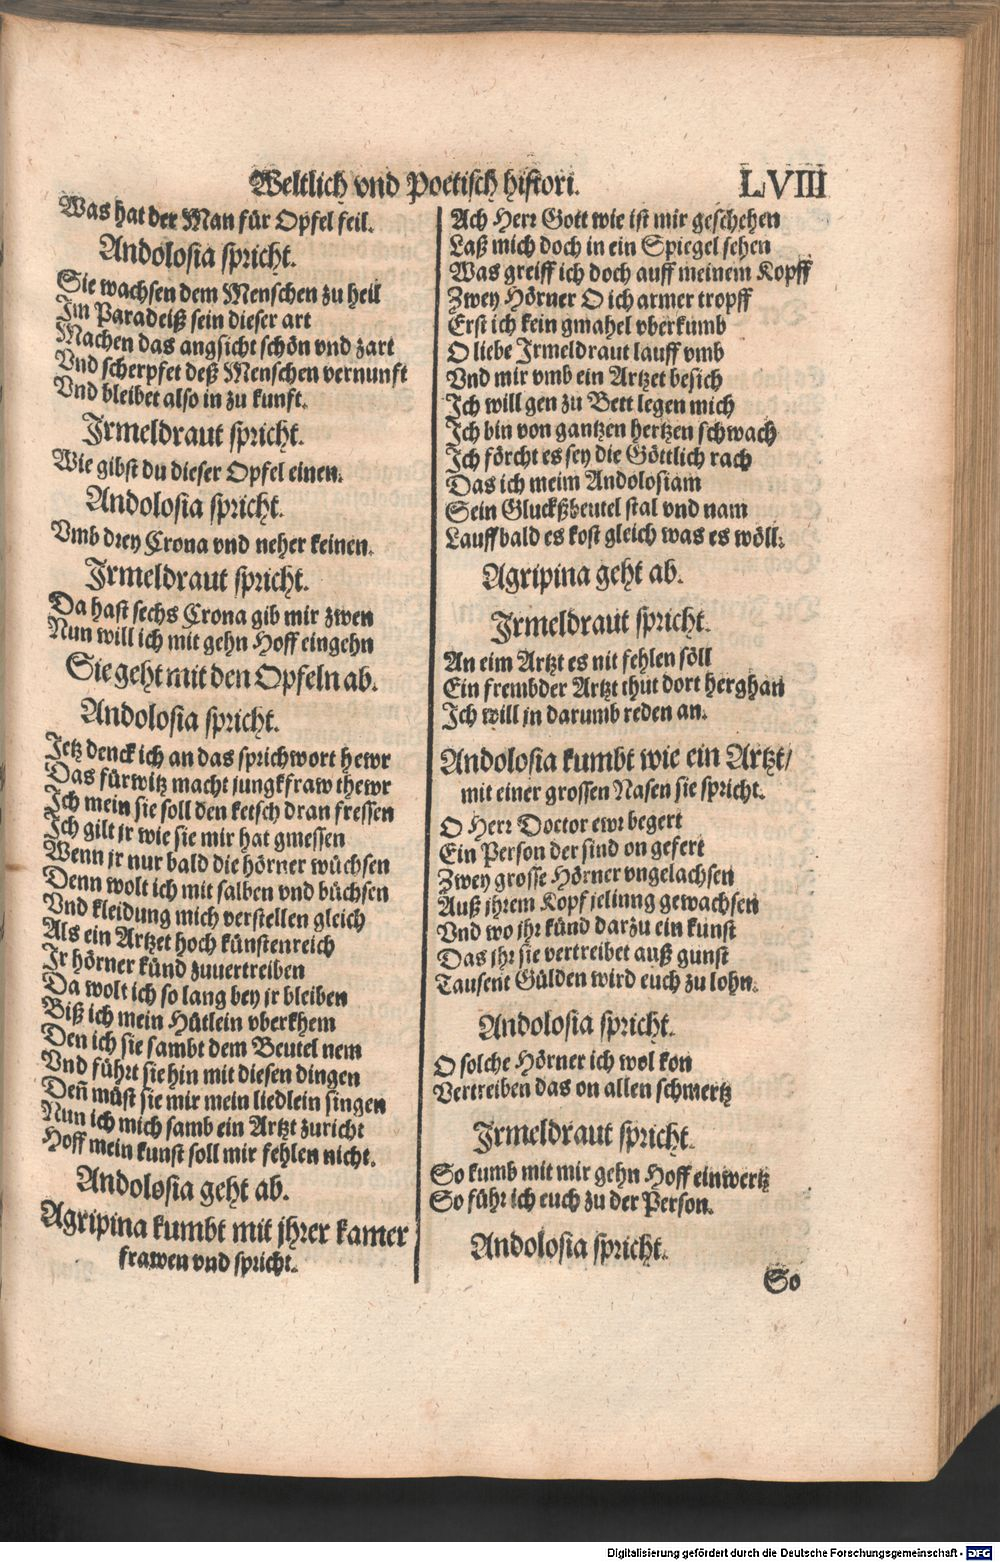 Weltlich vnd Poetisch histori. LVIII
Was hat der Man für Opfel feil.
Andolosia spricht.
Sie wachsen dem Menschen zu heil
Im Paradeiß sein dieser art
Machen das angsicht schön vnd zart
Vnd scherpfet deß Menschen vernunft
Vnd bleibet also in zu kunft.
Irmeldraut spricht.
Wie gibst du dieser Opfel einen.
Andolosia spricht.
Vmb drey Crona vnd neher keinen.
Irmeldraut spricht.
Da hast sechs Crona gib mir zwen
Nun will ich mit gehn Hoff eingehn
Sie geht mit den Opfeln ab.
Andolosia spricht.
Jetz denck ich an das sprichwort hewr
Das fürwitz macht jungkfraw thewr
Ich mein sie soll den ketsch dran fressen
Ich gilt jr wie sie mir hat gmessen
Wenn jr nur bald die hörner wüchsen
Denn wolt ich mit salben vnd büchsen
Vnd kleidung mich verstellen gleich
Als ein Artzet hoch künstenreich
Ir hörner künd zuuertreiben
Da wolt ich so lang bey jr bleiben
Biß ich mein Hütlein vberkhem
Den ich sie sambt dem Beutel nem
Vnd führt sie hin mit diesen dingen
Deñ müst sie mir mein liedlein singen
Nun ich mich samb ein Artzt zuricht
Hoff mein kunst soll mir fehlen nicht.
Andolosia geht ab.
Agripina kumbt mit jhrer kamer
frawen vnd spricht.
Ach Herr Gott wie ist mir geschehen
Laß mich doch in ein Spiegel sehen
Was greiff ich doch auff meinem Kopff
Zwey Hörner O ich armer tropff
Erst ich kein gmahel vberkumb
O liebe Irmeldraut lauff vmb
Vnd mir vmb ein Artzet besich
Ich will gen zu Bett legen mich
Ich bin von gantzen hertzen schwach
Ich förcht es sey die Göttlich rach
Das ich meim Andolosiam
Sein Gluckßbeutel stal vnd nam
Lauff bald es kost gleich was es wöll.
Agripina geht ab.
Irmeldraut spricht.
An eim Artzt es nit fehlen söll
Ein frembder Artzt thut dort herghan
Ich will jn darumb reden an.
Andolosia kumbt wie ein Artzt/
mit einer grossen Nasen sie spricht.
O Herr Doctor ewr begert
Ein Person der sind on gefert
Zwey grosse Hörner vngelachsen
Auß jhrem Kopf jelinng gewachsen
Vnd wo jhr künd darzu ein kunst
Das jhr sie vertreibet auß gunst
Tausent Gülden wird euch zu lohn.
Andolosia spricht.
O solche Hörner ich wol kon
Vertreiben das on allen schmertz
Irmeldraut spricht.
So kumb mit mir gehn Hoff einwertz
So führ ich euch zu der Person.
Andolosia spricht.
So
Digitalisierung gefördert durch die Deutsche Forschungsgemeinschaft - DFG